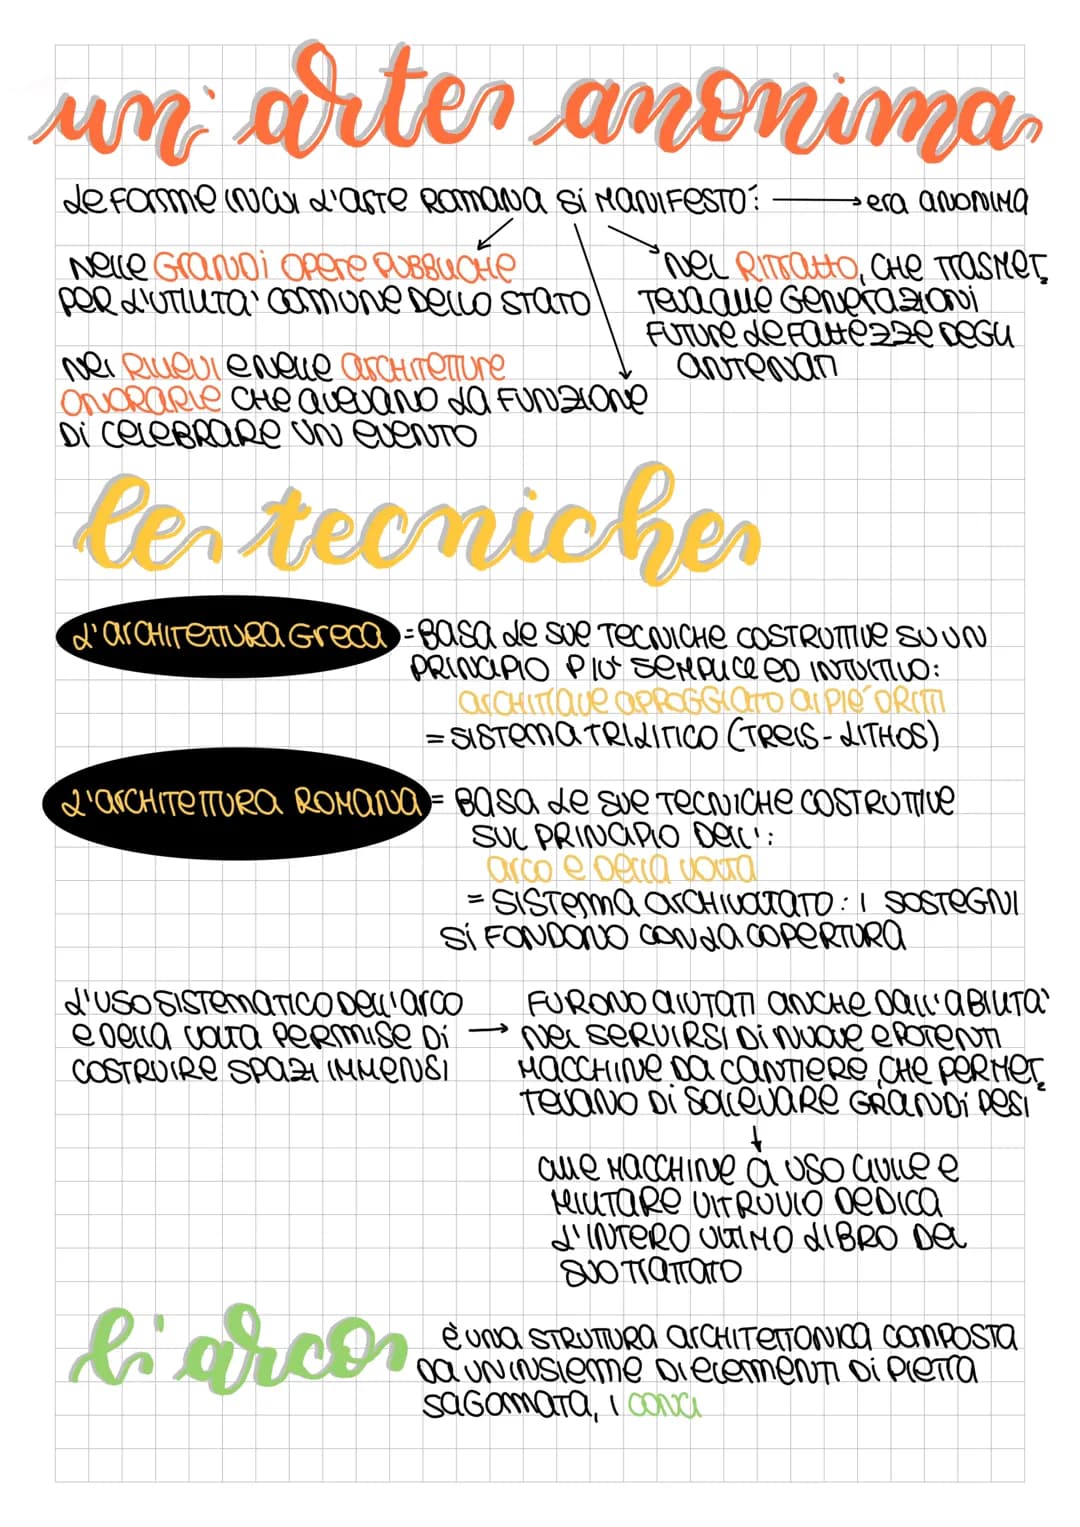 un' arte anonima
le forme in cui l'arte romana si manifestò: → era anonima
nelle grandi opere pubbliche
per l'utilità comune dello stato
nel ritratto, che trasmet
teva alle generazioni
future le fattezze degli
antenati
nei rilievi e nelle architetture
onorarie che avevano la funzione
di celebrare un evento
le tecniche
l'architettura greca = basa le sue tecniche costruttive su un
principio più semplice ed intuitivo:
architrave appoggiato ai pié dritti
= sistema trilitico (treis-lithos)
l'architettura romana = basa le sue tecniche costruttive
sul principio dell':
arco e della volta
= sistema archivoltato: i sostegni
si fondono con la copertura
l'uso sistematico dell'arco
e della volta permise di
costruire spazi immensi
→ furono aiutati anche dall'abilità
nel servirsi di nuove e potenti
macchine da cantiere, che permet
tevano di sollevare grandi pesi
alle macchine a uso civile e
militare Vitruvio dedica
l'intero ultimo libro del
suo trattato
l'arco
è una struttura architettonica composta
da un insieme di elementi di pietra
sagomata, i conci